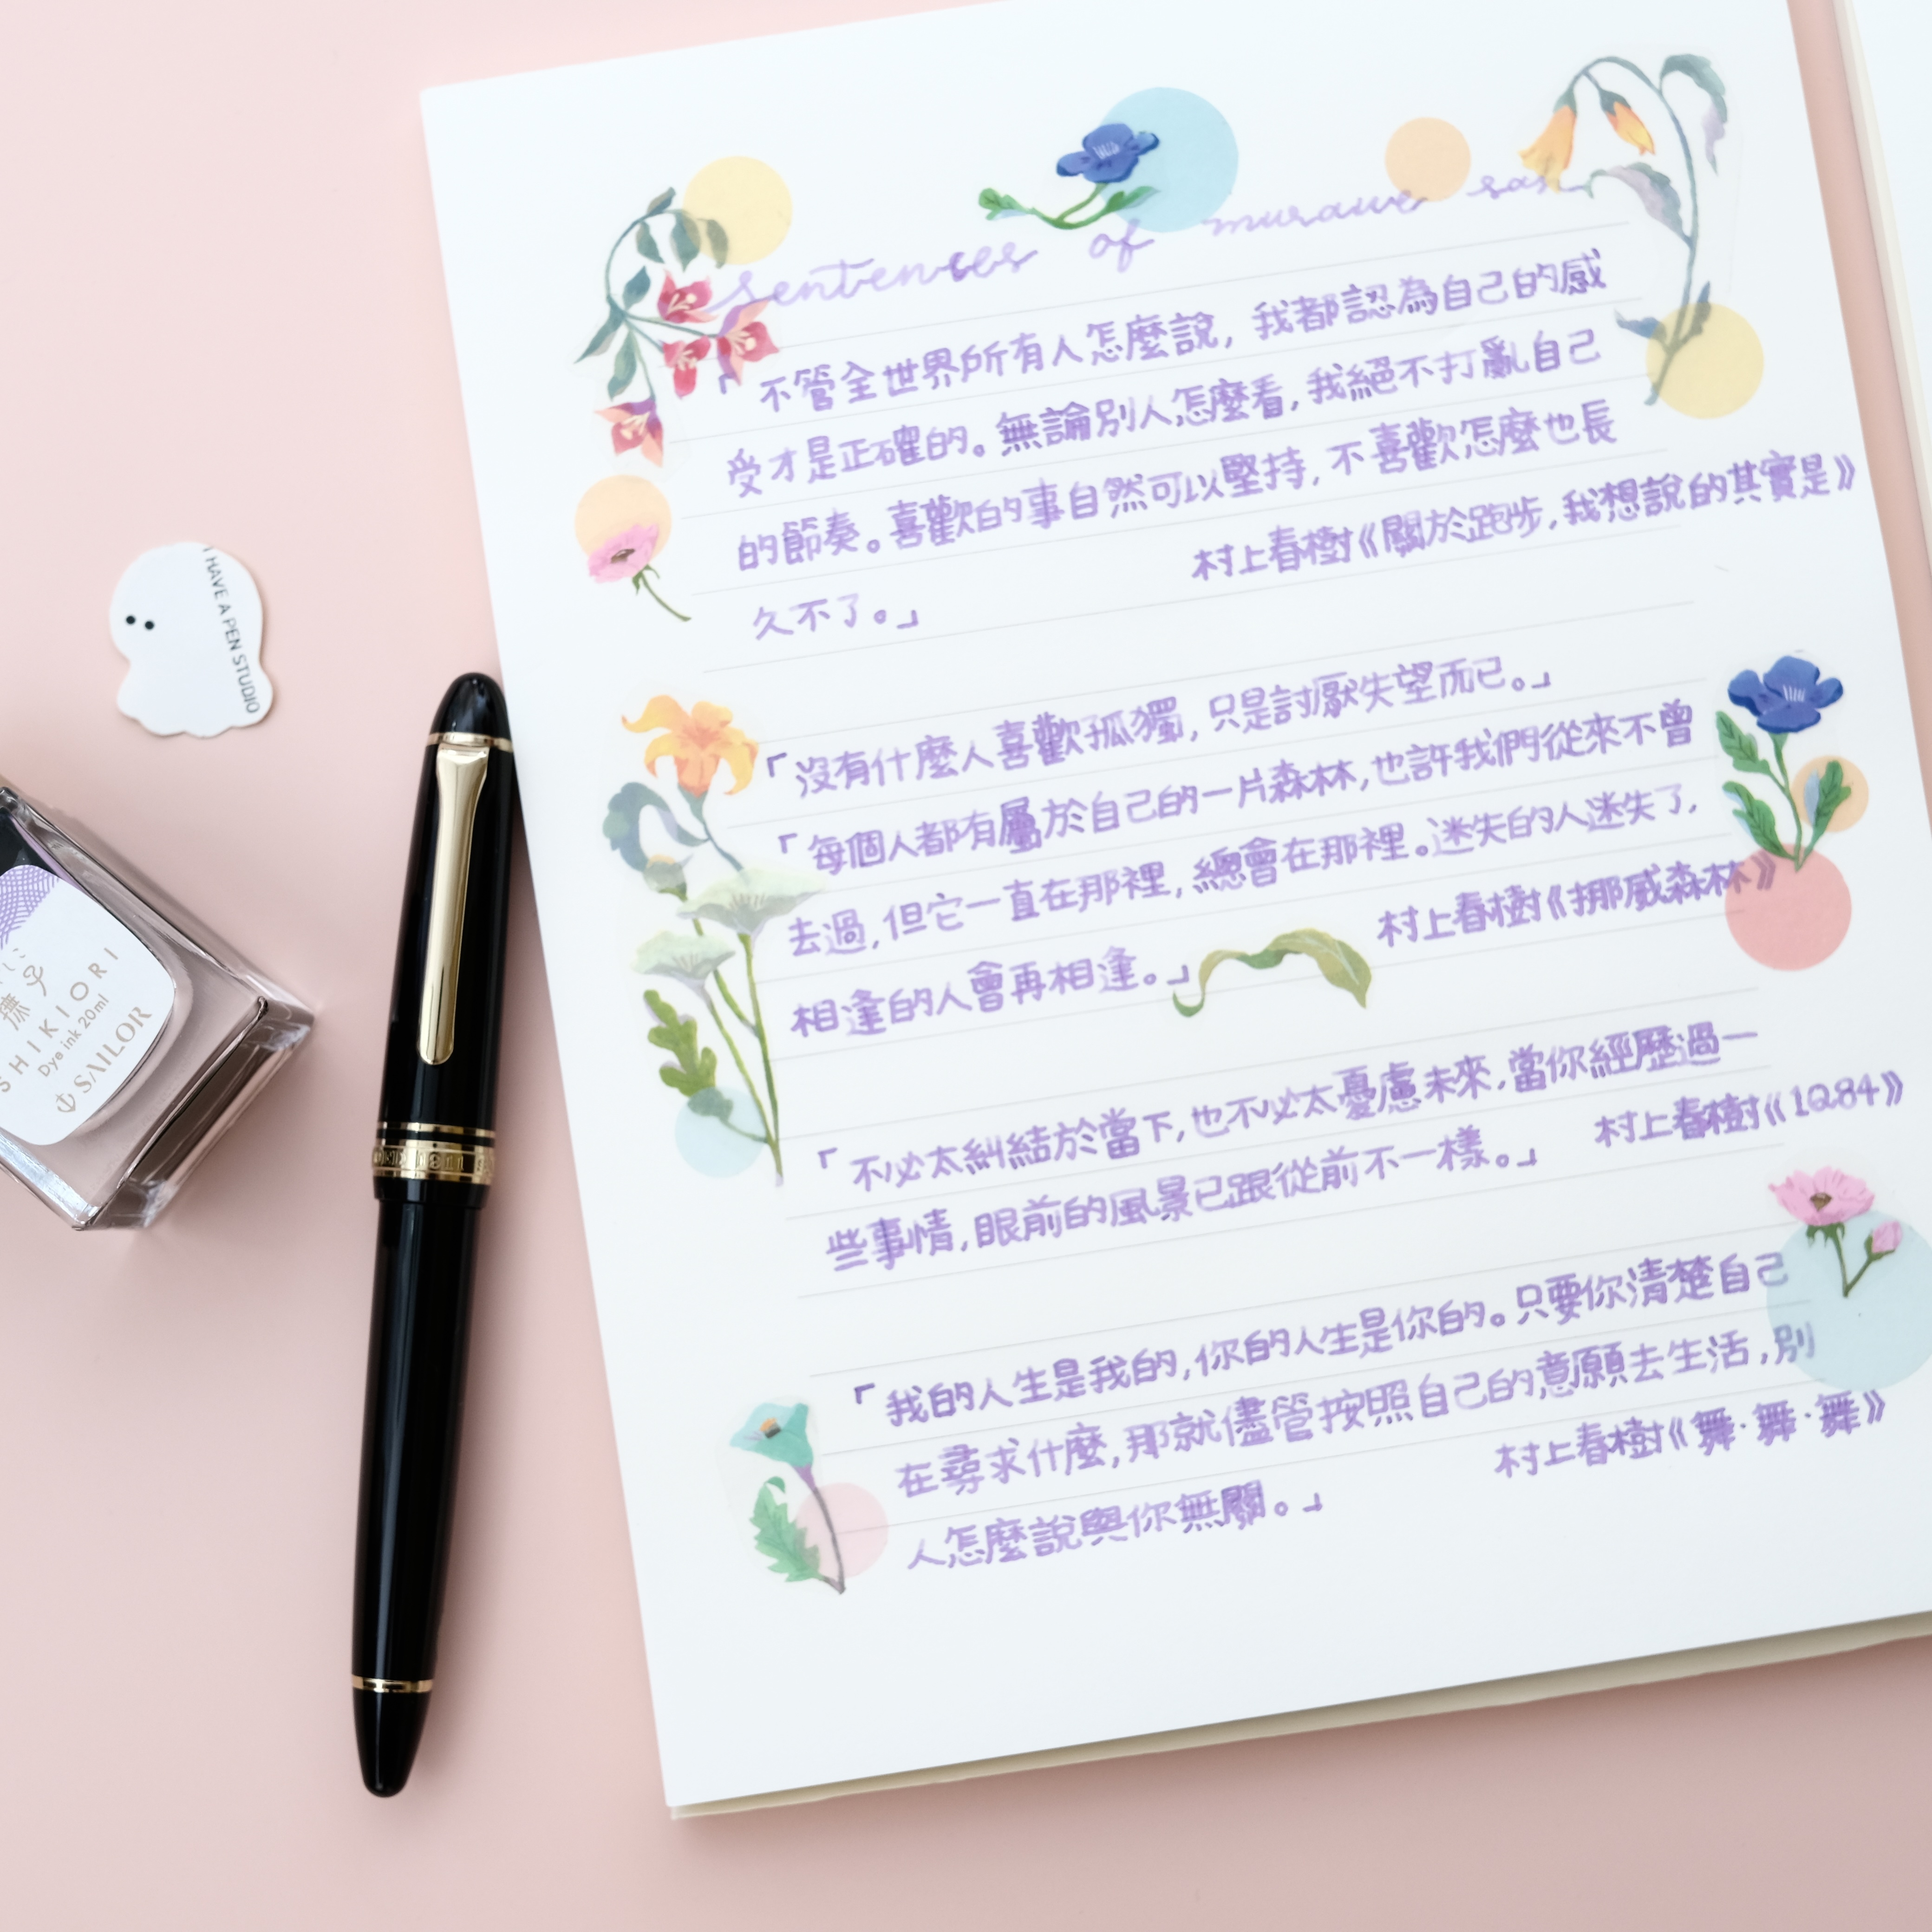 sentences of
「不管全世界所有人怎麼說，我都認為自己的感
受才是正確的。無論別人怎麼看，我絕不打亂自己
的節奏。喜歡的事自然可以堅持，不喜歡怎麼也長
久不了。」
村上春樹《關於跑步，我想說的其實是》
「沒有什麼人喜歡孤獨，只是討厭失望而已。」
「每個人都有屬於自己的一片森林，也許我們從來不曾
去過，但它一直在那裡，總會在那裡。迷失的人迷失了，
相逢的人會再相逢。」
村上春樹《挪威森林》
「不必太糾結於當下，也不必太憂慮未來，當你經歷過一
些事情，眼前的風景已跟從前不一樣。」
村上春樹《1Q84》
「我的人生是我的，你的人生是你的。只要你清楚自己
在尋求什麼，那就儘管按照自己的意願去生活，別
人怎麼說與你無關。」
村上春樹《舞·舞·舞》
I HAVE A PEN STUDIO
SHIKIORI
Dye ink 20ml
SAILOR